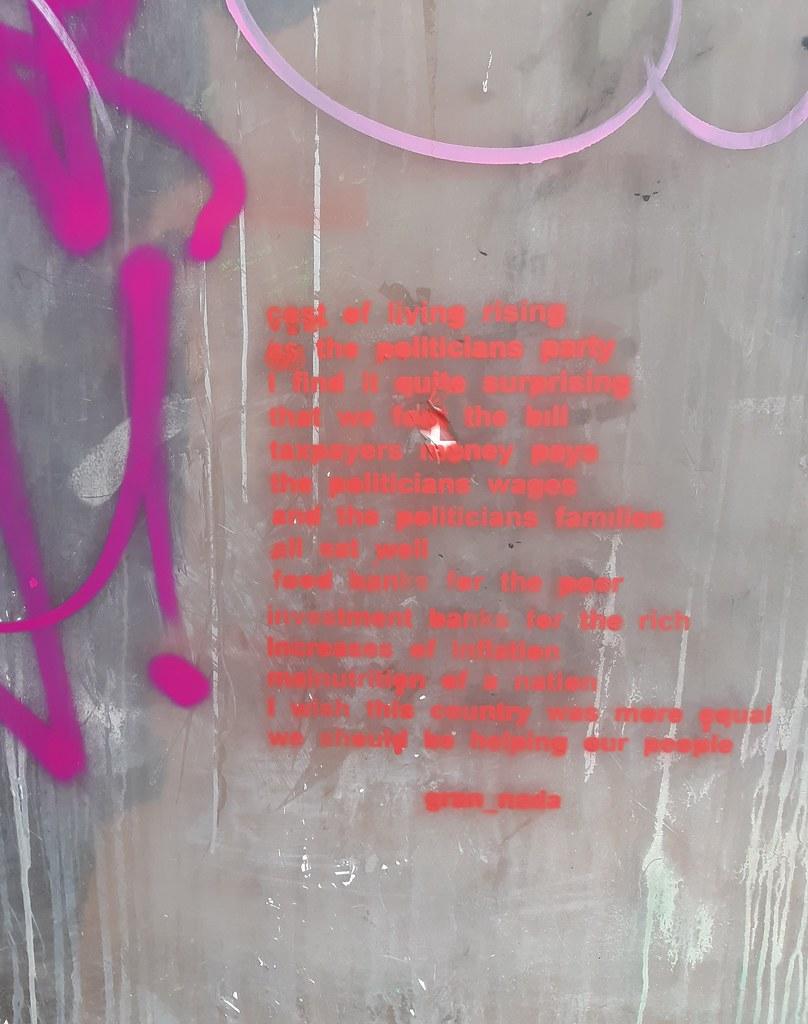 cost of living rising
as the politicians party
i find it quite surprising
that we foot the bill
taxpayers money pays
the politicians wages
and the politicians families
all eat well
food banks for the poor
investment banks for the rich
increases of inflation
malnutrition of a nation
I wish this country was more equal
we should be helping our people
gran_nada